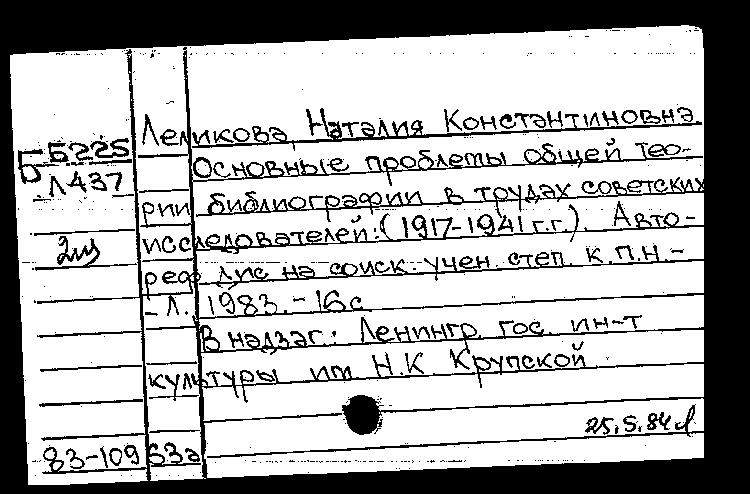 Леликова, Наталия Константиновна
Б Б225
Л437
Основные проблемы общей тео-
рии библиографии в трудах советских
исследователей: (1917-1941 г.г.). Авто-
2 из
реф дис на соиск. учен. степ. к.п.н.-
- Л., 1983. - 16с
В надзаг.: Ленингр. гос. ин-т
культуры им Н.К. Крупской
25.5.84
83-109 63а